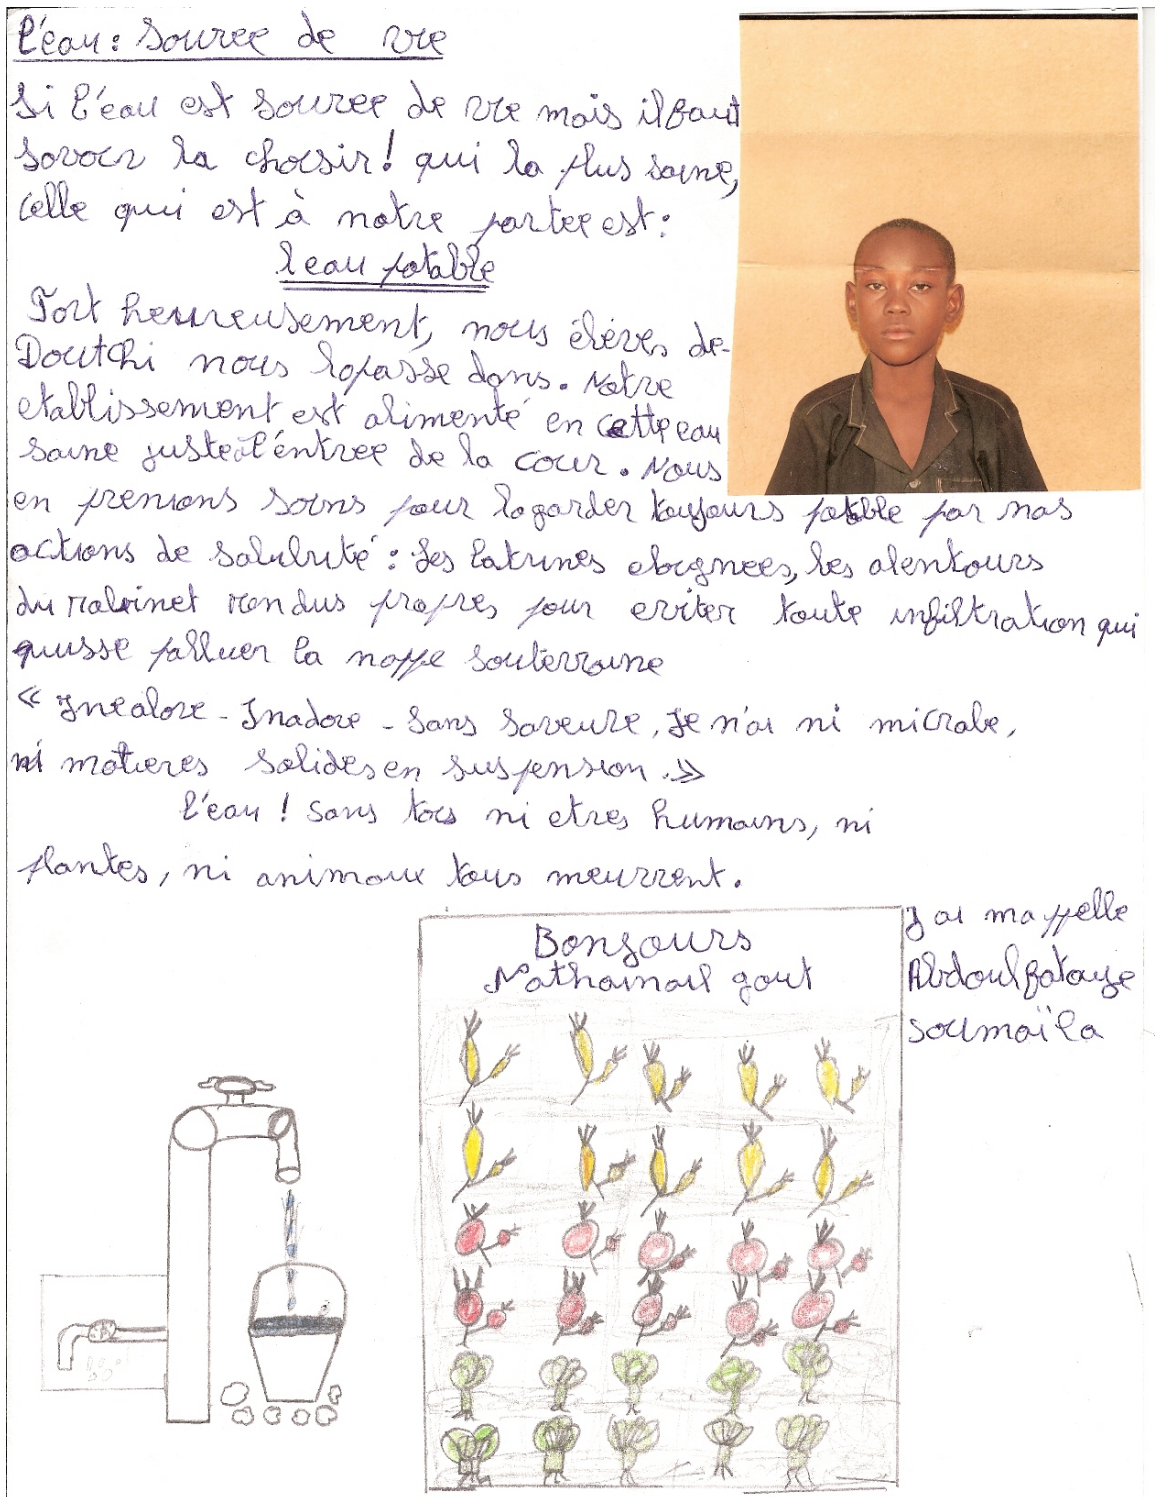 L'éau : Source de vie
Si l'éau est source de vie mais il faut
savoir la choisir ! qui la plus saine,
celle qui est à notre portee est :
l'eau potable
Fort heureusement, nous élèves de
Doutchi nous lopasse dans. Notre
etablissement est alimenté en cette eau
saine juste à l'éntree de la cour. Nous
en prenions soins pour la garder toujours potable par nos
actions de salubrité : les latrines eloignees, les alentours
du rabrinet rendus propres pour eviter toute infiltration qui
puisse polluer la nappe souterraine
« Incolore - Inodore - Sans Saveure, Je n'ai ni microbe,
ni matieres solides en suspension. »
L'éau ! Sans tois ni etres humains, ni
plantes, ni animaux tous meurrent.
J ai mappelle
Abdoulfataye
soumaïla
Bonjours
Nathanael gout